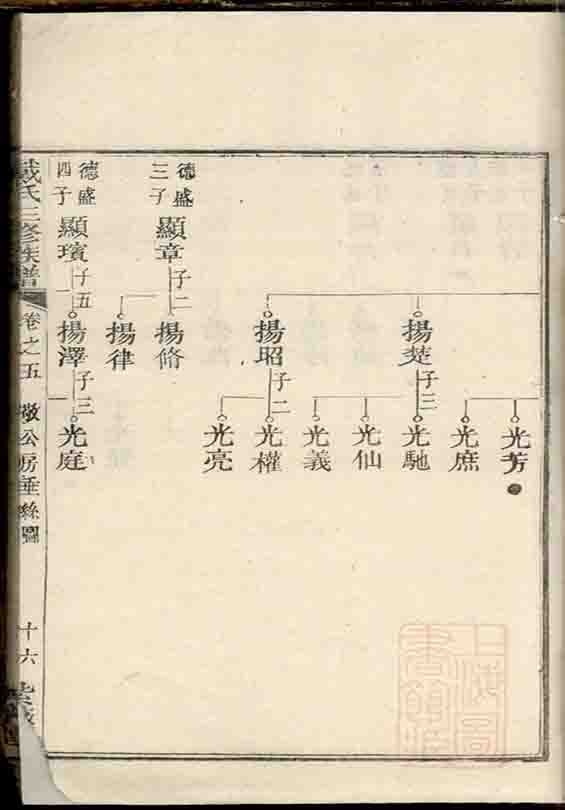 光芳
光庶
揚楚
子三
光馳
光仙
光義
揚昭
子二
光權
光亮
德盛
三子
顯章
子二
揚脩
揚律
德盛
四子
顯璸
子五
揚澤
子三
光庭
戴氏三修族譜
卷之五
敬公房垂絲圖
十六
上海圖書館藏